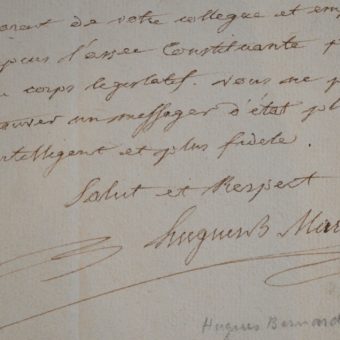 de votre collegue et em
l'assee Constituante p
corps legislatif. vous ne p
un messager d'état pl
ntelligent et plus fidele.
Salut et Respect
huguesB Mar
Hugues Bernard